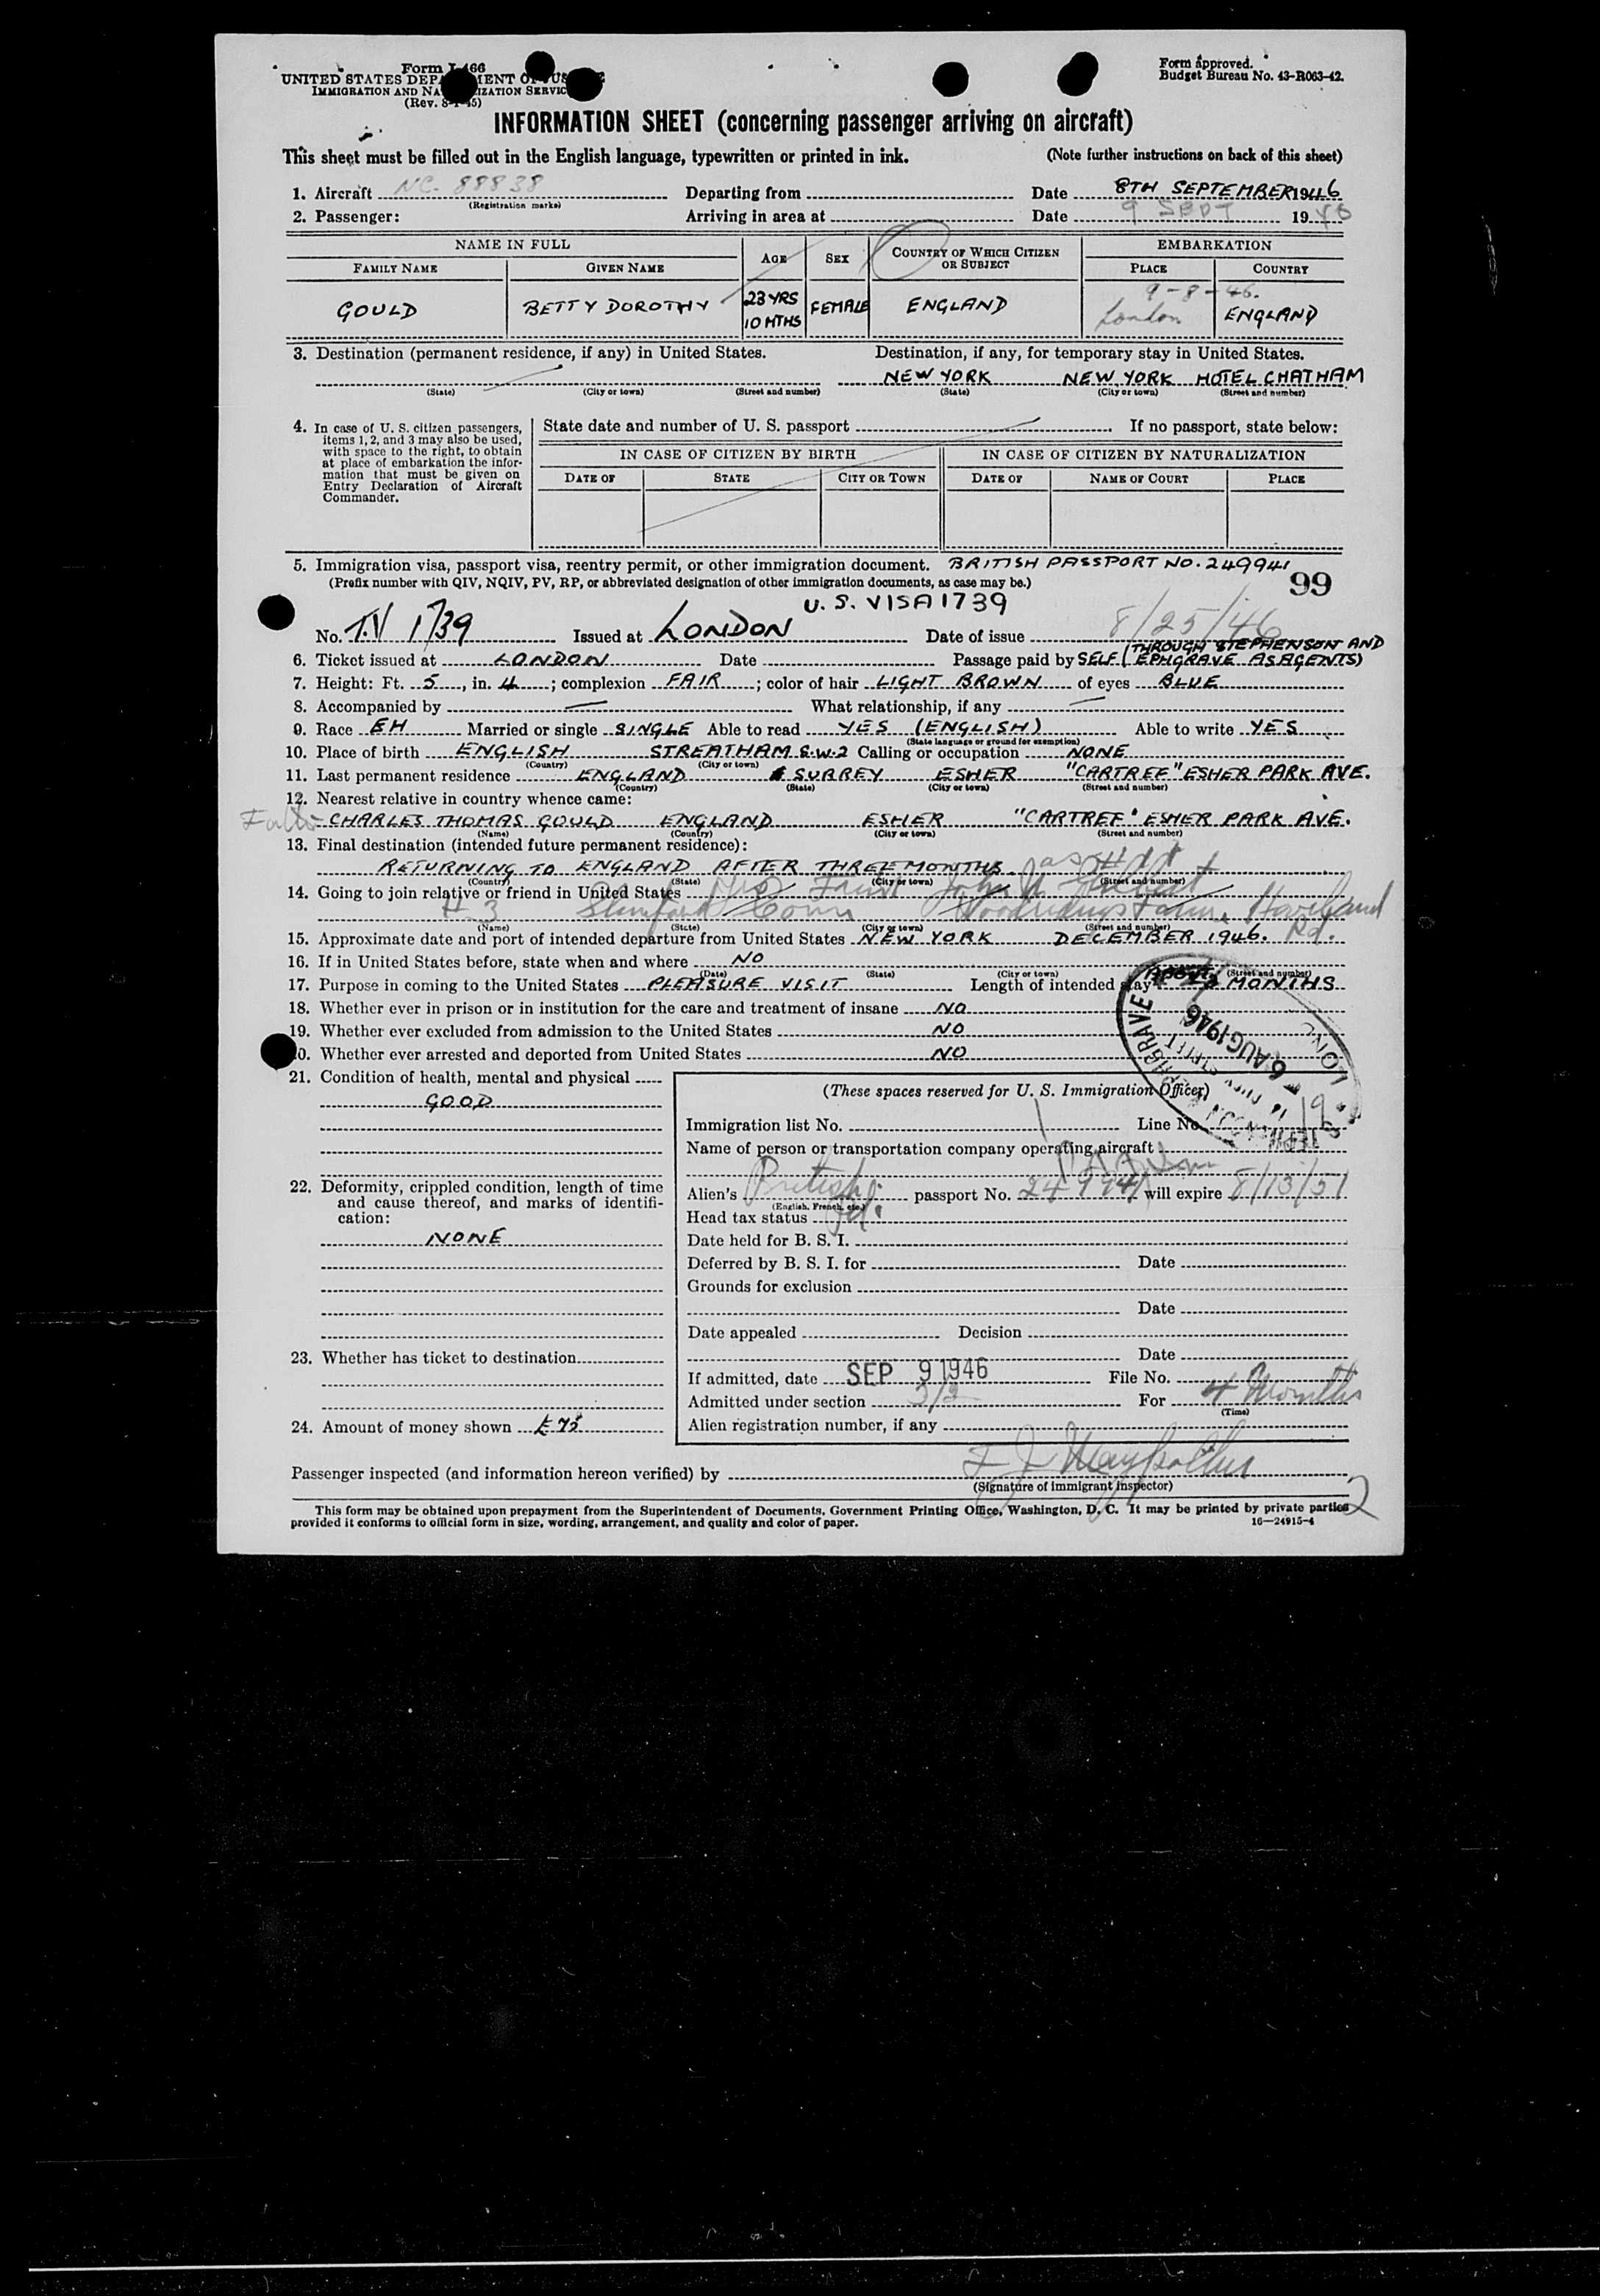 Form I-466
UNITED STATES DEPARTMENT OF JUSTICE
IMMIGRATION AND NATURALIZATION SERVICE
(Rev. 8-1-45)
Form approved.
Budget Bureau No. 43-R063-42.
INFORMATION SHEET (concerning passenger arriving on aircraft)
This sheet must be filled out in the English language, typewritten or printed in ink. (Note further instructions on back of this sheet)
1. Aircraft NC-88838 Departing from Date 8TH SEPTEMBER 1946
(Registration marks)
2. Passenger: Arriving in area at Date 9 SEPT 1946
NAME IN FULL AGE SEX COUNTRY OF WHICH CITIZEN OR SUBJECT EMBARKATION
FAMILY NAME GIVEN NAME PLACE COUNTRY
9-8-46.
GOULD BETTY DOROTHY 23 YRS 10 MTHS FEMALE ENGLAND London ENGLAND
3. Destination (permanent residence, if any) in United States. Destination, if any, for temporary stay in United States.
NEW YORK NEW YORK HOTEL CHATHAM
(State) (City or town) (Street and number) (State) (City or town) (Street and number)
4. In case of U. S. citizen passengers, items 1, 2, and 3 may also be used, with space to the right, to obtain at place of embarkation the information that must be given on Entry Declaration of Aircraft Commander.
State date and number of U. S. passport If no passport, state below:
IN CASE OF CITIZEN BY BIRTH IN CASE OF CITIZEN BY NATURALIZATION
DATE OF STATE CITY OR TOWN DATE OF NAME OF COURT PLACE
5. Immigration visa, passport visa, reentry permit, or other immigration document. BRITISH PASSPORT NO. 249941
(Prefix number with QIV, NQIV, PV, RP, or abbreviated designation of other immigration documents, as case may be.) 99
U. S. VISA 1739
No. T.V 1739 Issued at LONDON Date of issue 8/25/46
6. Ticket issued at LONDON Date Passage paid by SELF (THROUGH STEPHENSON AND EPHGRAVE AS AGENTS)
7. Height: Ft. 5, in. 4; complexion FAIR; color of hair LIGHT BROWN of eyes BLUE
8. Accompanied by — What relationship, if any —
9. Race EH Married or single SINGLE Able to read YES (ENGLISH) Able to write YES
(State language or ground for exemption)
10. Place of birth ENGLISH STREATHAM S.W.2 Calling or occupation NONE
(Country) (City or town)
11. Last permanent residence ENGLAND SURREY ESHER "CARTREF" ESHER PARK AVE.
(Country) (State) (City or town) (Street and number)
12. Nearest relative in country whence came:
CHARLES THOMAS GOULD ENGLAND ESHER "CARTREF" ESHER PARK AVE.
(Name) (Country) (City or town) (Street and number)
13. Final destination (intended future permanent residence):
RETURNING TO ENGLAND AFTER THREE MONTHS.
(Country) (State) (City or town) (Street and number)
14. Going to join relative or friend in United States Friend John
# 3 Stamford Conn Farm, Rd.
(Name) (State) (City or town) (Street and number)
15. Approximate date and port of intended departure from United States NEW YORK DECEMBER 1946.
16. If in United States before, state when and where NO
(Date) (State) (City or town) (Street and number)
17. Purpose in coming to the United States PLEASURE VISIT Length of intended stay MONTHS
18. Whether ever in prison or in institution for the care and treatment of insane NO
19. Whether ever excluded from admission to the United States NO
20. Whether ever arrested and deported from United States NO
EPHGRAVE 6 AUG 1946
21. Condition of health, mental and physical
GOOD
22. Deformity, crippled condition, length of time and cause thereof, and marks of identification:
NONE
23. Whether has ticket to destination
24. Amount of money shown £75
(These spaces reserved for U. S. Immigration Officer)
Immigration list No. 1 Line No. 19
Name of person or transportation company operating aircraft:
Alien's British passport No. 249941 will expire 8/13/51
(English, French, etc.)
Head tax status
Date held for B. S. I.
Deferred by B. S. I. for Date
Grounds for exclusion
Date
Date appealed Decision
Date
If admitted, date SEP 9 1946 File No.
Admitted under section 3/2 For 4 Months
(Time)
Alien registration number, if any
Passenger inspected (and information hereon verified) by
(Signature of immigrant inspector)
This form may be obtained upon prepayment from the Superintendent of Documents, Government Printing Office, Washington, D. C. It may be printed by private parties
provided it conforms to official form in size, wording, arrangement, and quality and color of paper. 16—24915-4
2